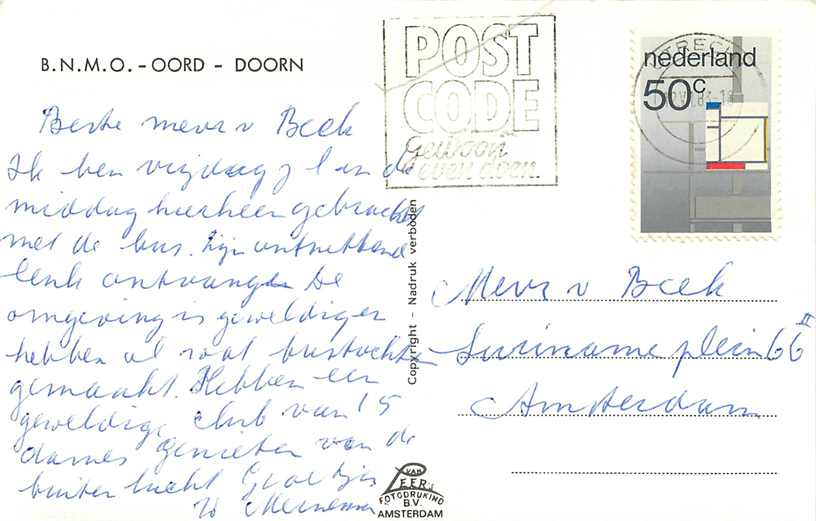 B.N.M.O. - OORD - DOORN
Beste mevr v Beek
Ik ben vrijdag j l in de
middag hierheen gebracht
met de bus. Zijn ontzettend
leuk ontvangen De
omgeving is geweldig en
hebben al wat bustochten
gemaakt. Hebben een
geweldige club van 15
dames genieten van de
buiten lucht Groetjes
POST
CODE
gewoon
even doen.
nederland
50c
Copyright - Nadruk verboden
Mevr v Beek
Suriname plein 66 II
Amsterdam
VAN
LEER'S
FOTODRUKIND
B.V.
AMSTERDAM